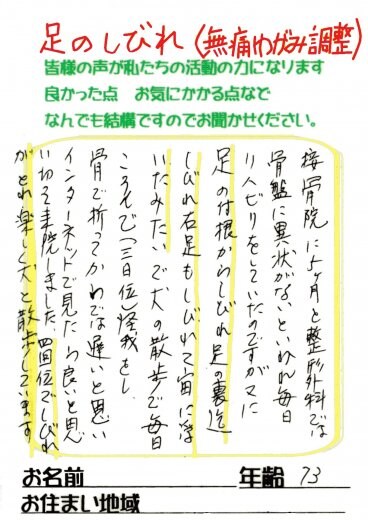 足のしびれ(無痛ゆがみ調整)
皆様の声が私たちの活動の力になります
良かった点　お気にかかる点など
なんでも結構ですのでお聞かせください。
接骨院に5ヶ月と整形外科では
骨盤に異状がないといわれ毎日
リハビリをしていたのですがマヒ
足の付根からしびれ足の裏迄
しびれ右足もしびれて宙に浮
いたみたいで犬の散歩で毎日
ころんで(三日位怪我をし
骨で折ってからでは遅いと思い
インターネットで見たら良いと思
い切って来院しました。四回位でしびれ
がとれ楽しく犬と散歩しています
お名前
年齢 73
お住まい地域